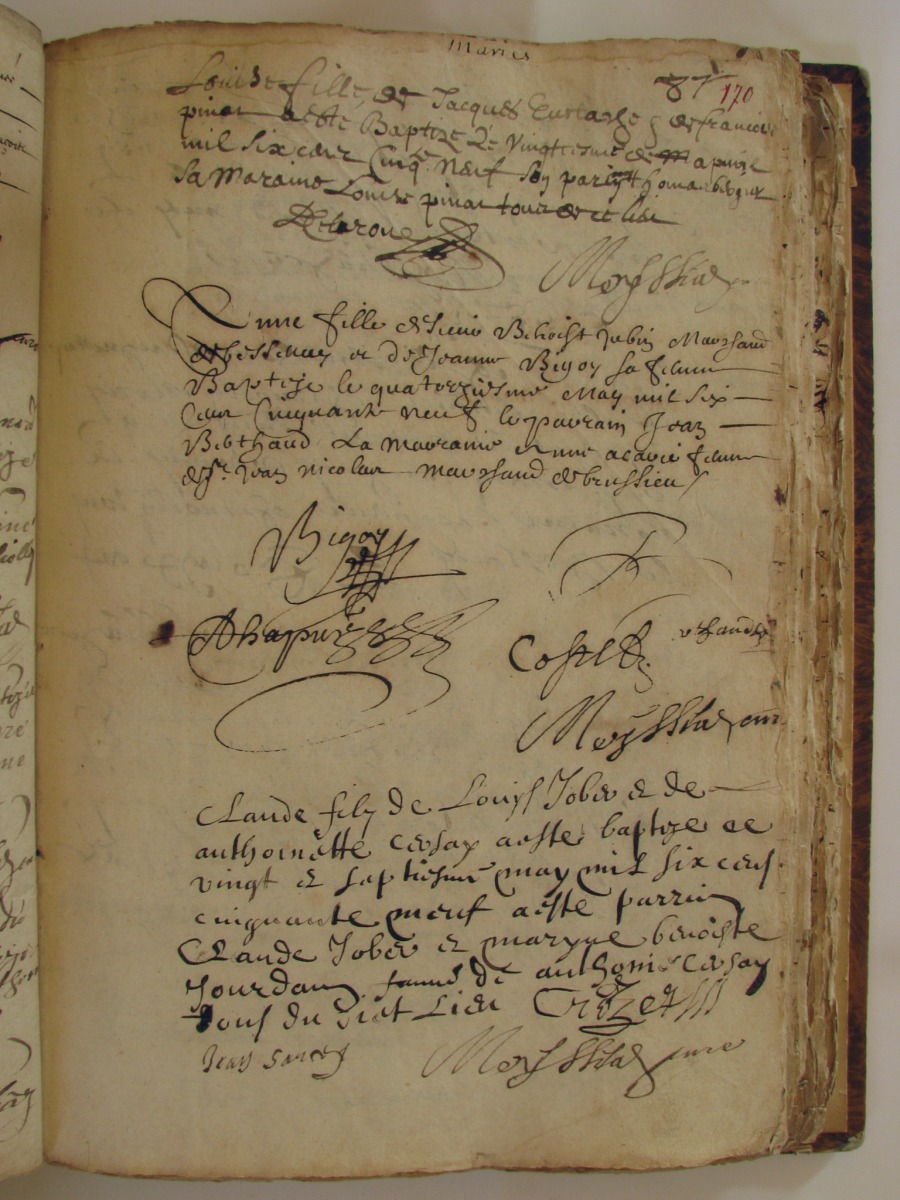 Maries
87 170
Louise fille de Jacques Eustache & de francoise
pinat a esté Baptize Le Vingtiesme de apuril
mil six cens Cinq.te Neuf Son parin
Sa maraine Louise pinat tous de ce lieu
Delaroue
Meyssia
Anne fille de sieur Benoist Jubin Marchand
de bessenay et de Jeanne Bigoy sa femme
Baptisé le quatorziesme May mil six
Cens Cinquante neuf le parrain Jean
Berthaud La marraine Anne femme
de Sr. Jean nicolas marchand de brussieu
Bigoy
Chapuis
Coste
Meyssia cure
Claude filz de Louys Jober et de
anthoinette Cersay a esté baptize ce
vingt et septiesme may mil six cens
cinquante neuf a esté parrin
Claude Jober et maryne benoiste
Jourdan famme de anthonie Cersay
tous du dict Lieu Crozet
Jean
Meyssia cure